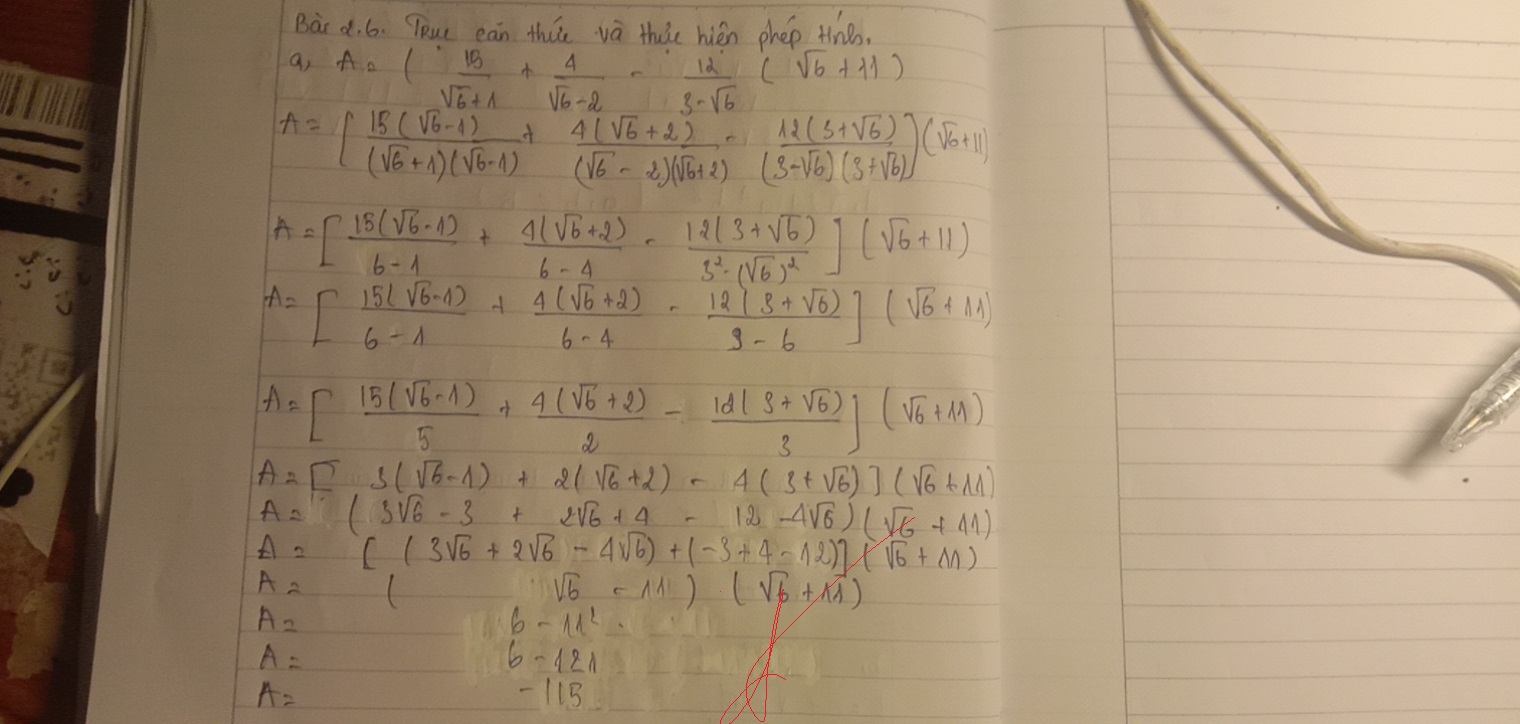 Bài 2.6. Trục căn thức và thực hiện phép tính.
a, A = ( 15/(√6+1) + 4/(√6-2) - 12/(3-√6) ( √6 + 11 )
A = [ 15(√6-1)/((√6+1)(√6-1)) + 4(√6+2)/((√6-2)(√6+2)) - 12(3+√6)/((3-√6)(3+√6)) ] (√6+11)
A = [ 15(√6-1)/(6-1) + 4(√6+2)/(6-4) - 12(3+√6)/(3²-(√6)²) ] (√6+11)
A = [ 15(√6-1)/(6-1) + 4(√6+2)/(6-4) - 12(3+√6)/(9-6) ] (√6+11)
A = [ 15(√6-1)/5 + 4(√6+2)/2 - 12(3+√6)/3 ] (√6+11)
A = [ 3(√6-1) + 2(√6+2) - 4(3+√6) ] (√6+11)
A = ( 3√6 - 3 + 2√6 + 4 - 12 - 4√6 ) ( √6 + 11 )
A = [ ( 3√6 + 2√6 - 4√6 ) + ( -3 + 4 - 12 ) ] ( √6 + 11 )
A = ( √6 - 11 ) ( √6 + 11 )
A = 6 - 11²
A = 6 - 121
A = -115